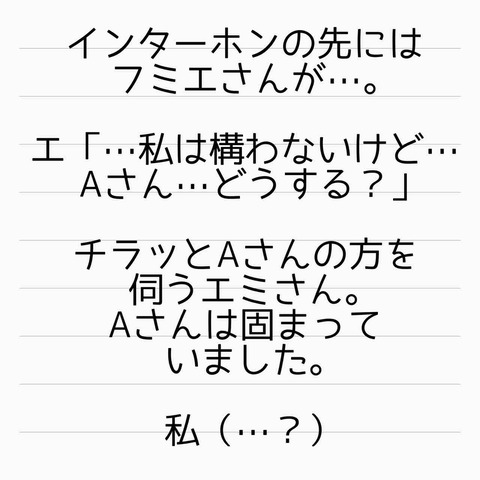 インターホンの先には
フミエさんが…。
エ「…私は構わないけど…
Aさん…どうする？」
チラッとAさんの方を
伺うエミさん。
Aさんは固まって
いました。
私（…？）